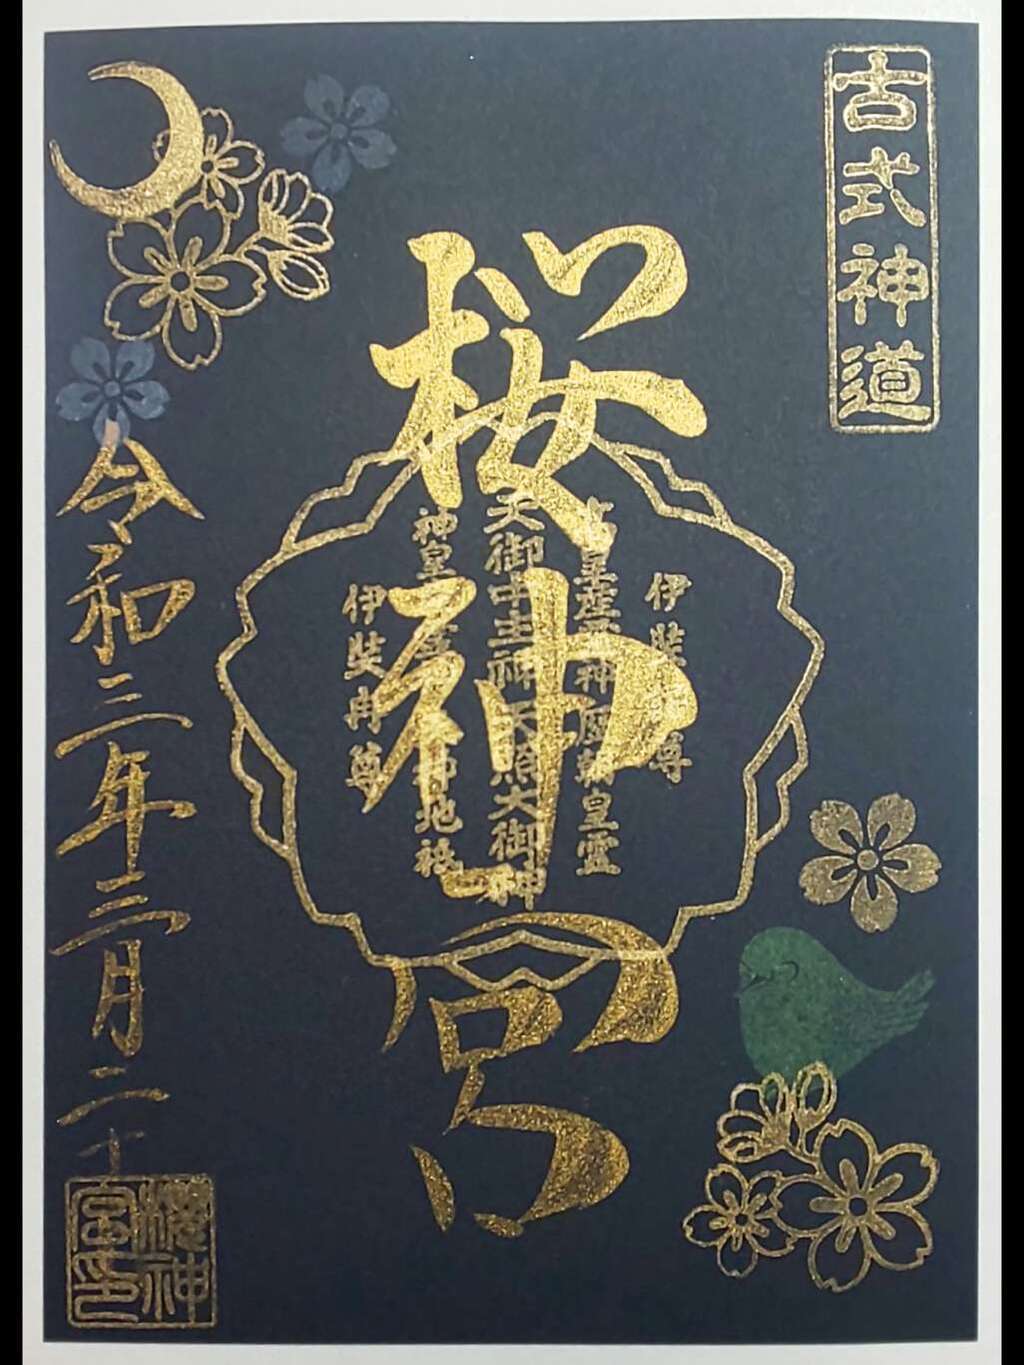 古式神道
桜神宮
伊弉諾尊
高皇産霊神 歴朝皇霊
天御中主神 天照大御神
神皇産霊神 天神地祇
伊弉冉尊
令和三年三月二十
櫻神
宮印